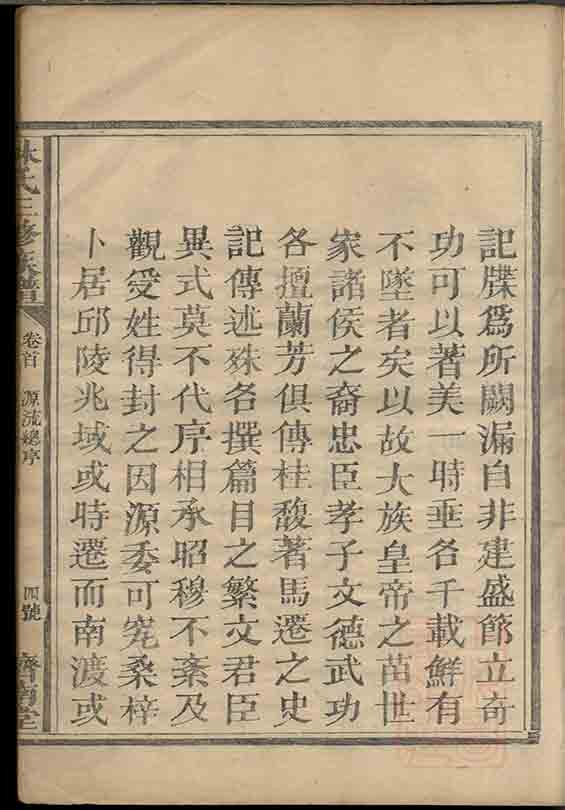 記牒爲所闕漏自非建盛節立奇
功可以著美一時垂各千載鮮有
不墜者矣以故大族皇帝之苗世
家諸侯之裔忠臣孝子文德武功
各擅蘭芳俱傳桂馥著馬遷之史
記傳述殊各撰篇目之繁文君臣
異式莫不代序相承昭穆不紊及
觀受姓得封之因源委可究桑梓
卜居邱陵兆域或時遷而南渡或
林氏三修族譜
卷首
源流總序
四號
齊南堂